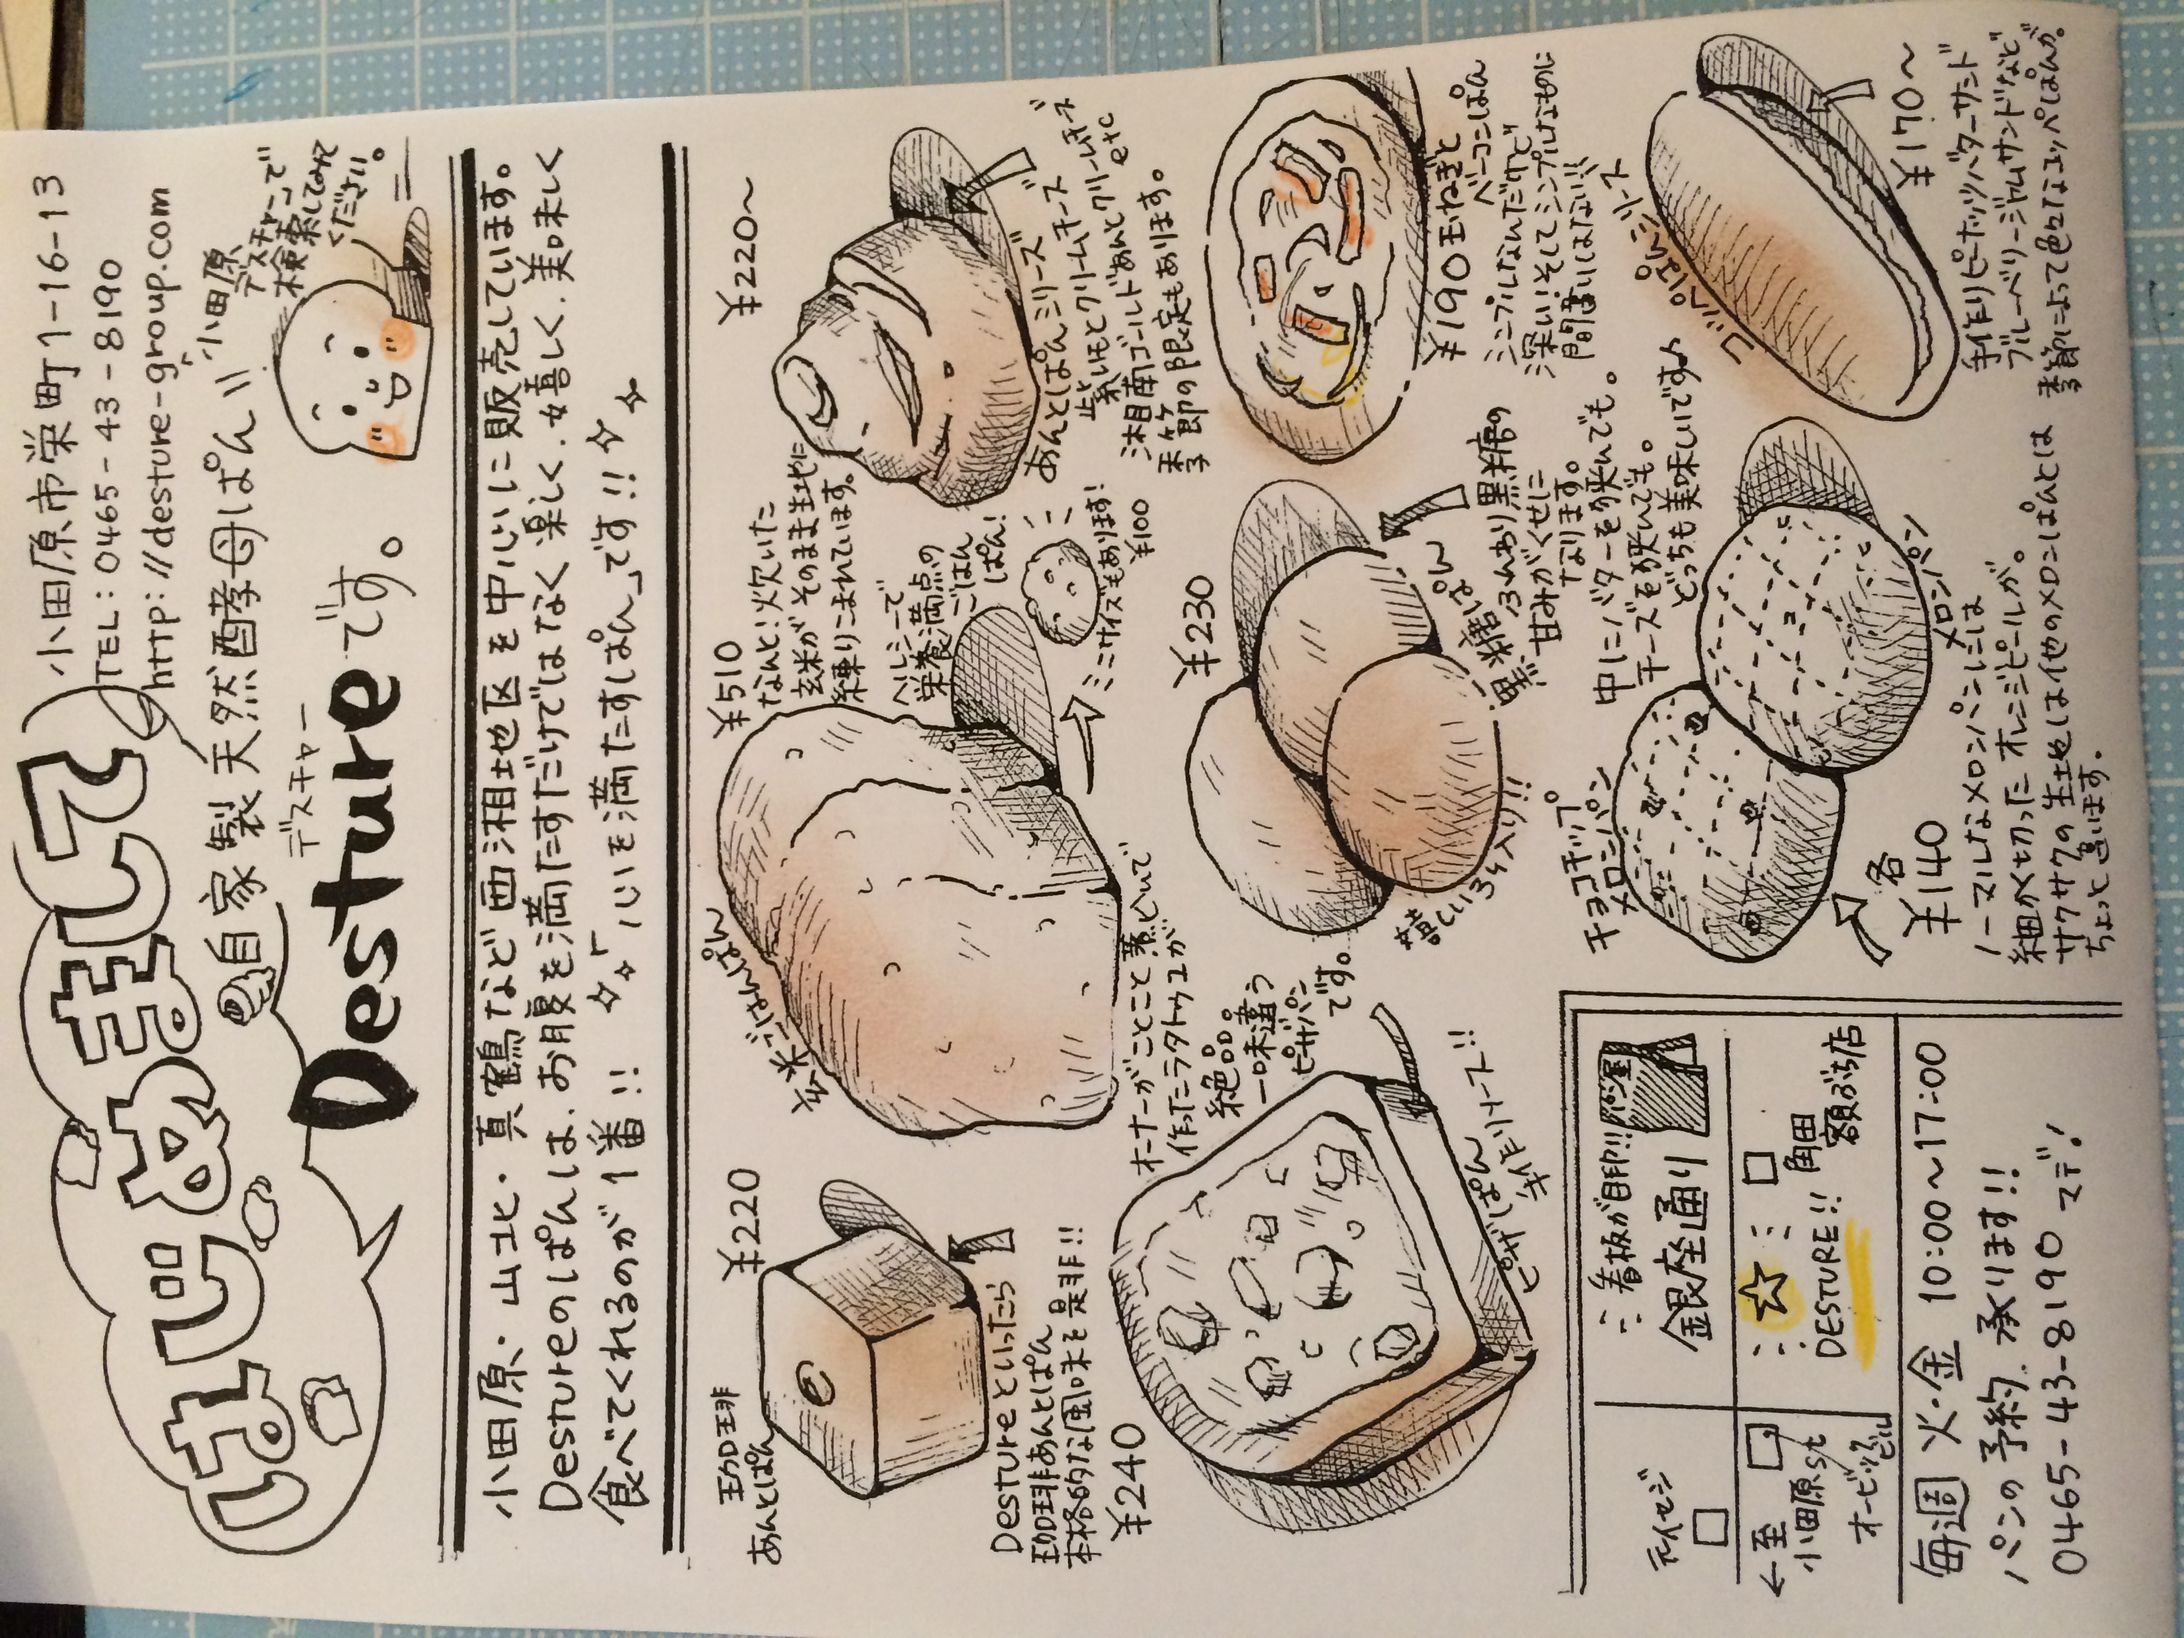 はじめまして
小田原市栄町1-16-13
TEL:0465-43-8190
http://desture-group.com
自家製天然酵母ぱん
デスチャー
Destureです。
小田原
デスチャーで
検索してみて
ください。
小田原・山北・真鶴など西湘地区を中心に販売しています。
Destureのぱんは、お腹を満たすだけではなく楽しく、嬉しく、美味しく
食べてくれるのが1番!!「心を満たすぱん」です!!
珈琲
あんとぱん
¥220
Destureといったら
珈琲あんとぱん
本格的な風味を是非!!
玄米ごはんぱん
¥510
なんと!炊いた
玄米がそのまま生地に
練りこまれています。
ヘルシーで
栄養満点の
ごはん
ぱん!
ミニサイズもあります!
¥100
¥220〜
あんとぱんシリーズ
紫いもとクリームチーズ
湘南ゴールドあんとクリームチーズ
etc
季節の限定もあります。
¥240
オーナーがことこと煮込んで
作ったラタトゥユが
絶品。
一味違う
ピザパン
です。
ピザぱん
手作りソース!!
¥230
黒糖ぱん
嬉しい3ヶ入り!!
ふんわり黒糖の
甘みがくせに
なります。
中にバターを挟んでも。
チーズを挟んでも。
どっちも美味しいです
¥190
玉ねぎと
ベーコンぱん
シンプルなんだけど
深い。そしてシンプルなものに
間違いはない!!
チョコチップ
メロンパン
メロンパン
各
¥140
ノーマルなメロンパンには
細かく切ったオレンジピールが。
サクサクの生地は他のメロンぱんとは
ちょっと違います。
コッペぱんシリーズ
¥170〜
手作りピーナッツバターサンド
ブルーベリージャムサンドなど
季節によって色々なコッペぱんが。
看板が目印!!
パン屋
元イセジ
銀座通り
←至
小田原St
オービックビル
DESTURE!!
角田
額ぶち店
毎週 火・金 10:00〜17:00
パンの予約、承ります!!
0465-43-8190 マデ!